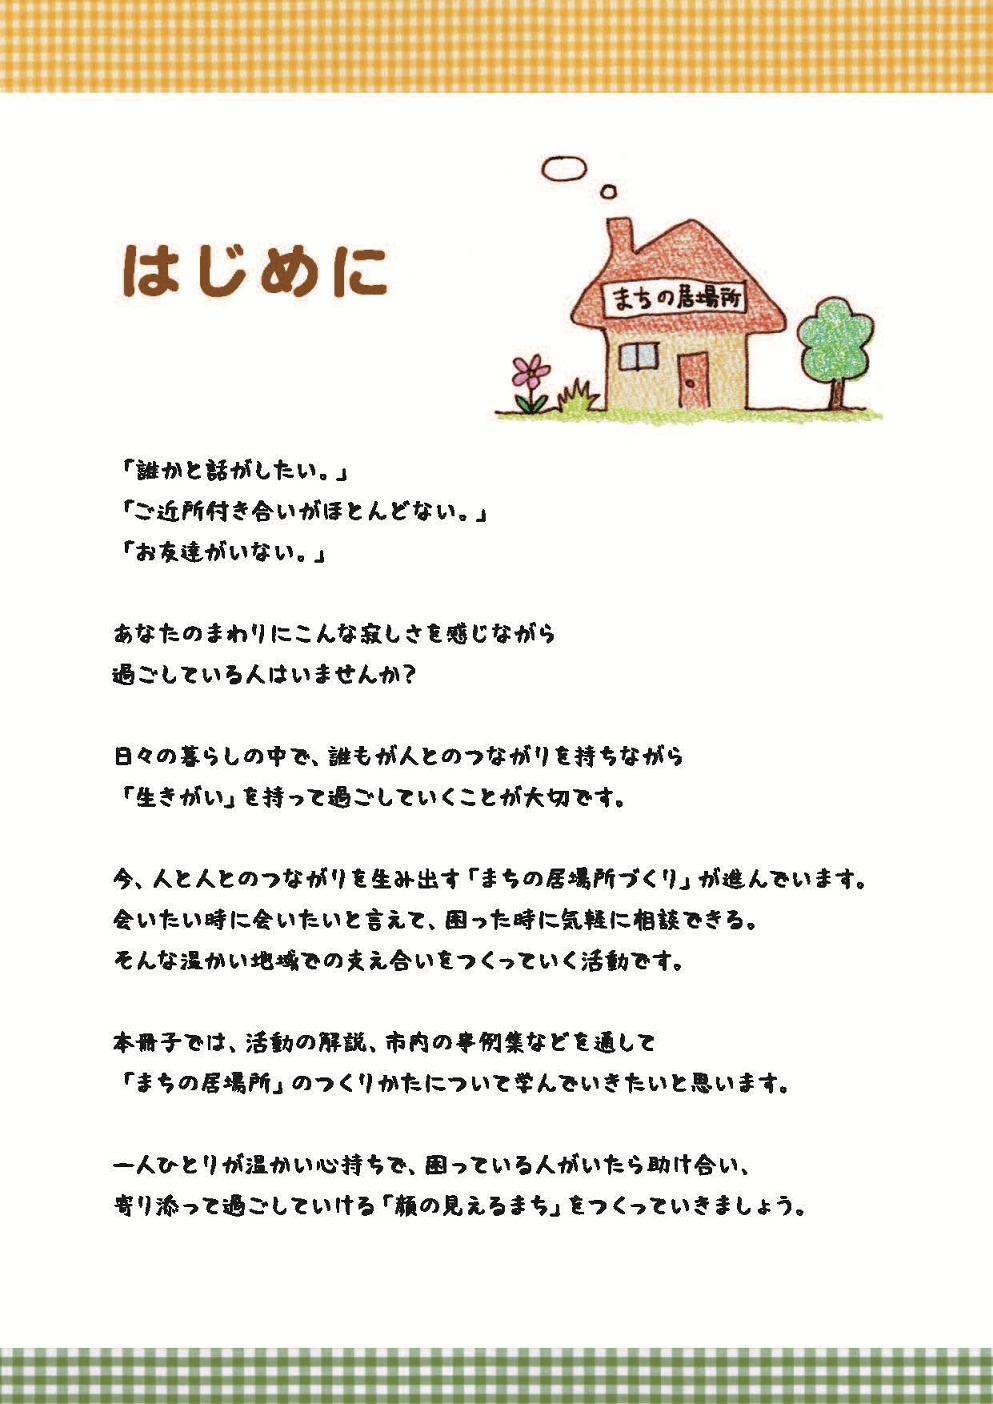 はじめに
まちの居場所
「誰かと話がしたい。」
「ご近所付き合いがほとんどない。」
「お友達がいない。」
あなたのまわりにこんな寂しさを感じながら
過ごしている人はいませんか？
日々の暮らしの中で、誰もが人とのつながりを持ちながら
「生きがい」を持って過ごしていくことが大切です。
今、人と人とのつながりを生み出す「まちの居場所づくり」が進んでいます。
会いたい時に会いたいと言えて、困った時に気軽に相談できる。
そんな温かい地域での支え合いをつくっていく活動です。
本冊子では、活動の解説、市内の事例集などを通して
「まちの居場所」のつくりかたについて学んでいきたいと思います。
一人ひとりが温かい心持ちで、困っている人がいたら助け合い、
寄り添って過ごしていける「顔の見えるまち」をつくっていきましょう。